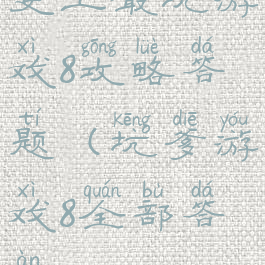 xì gōng lüè dá
戏8攻略答
tí kēng diē yóu
题（坑爹游
xì quán bù dá
戏8全部答
àn